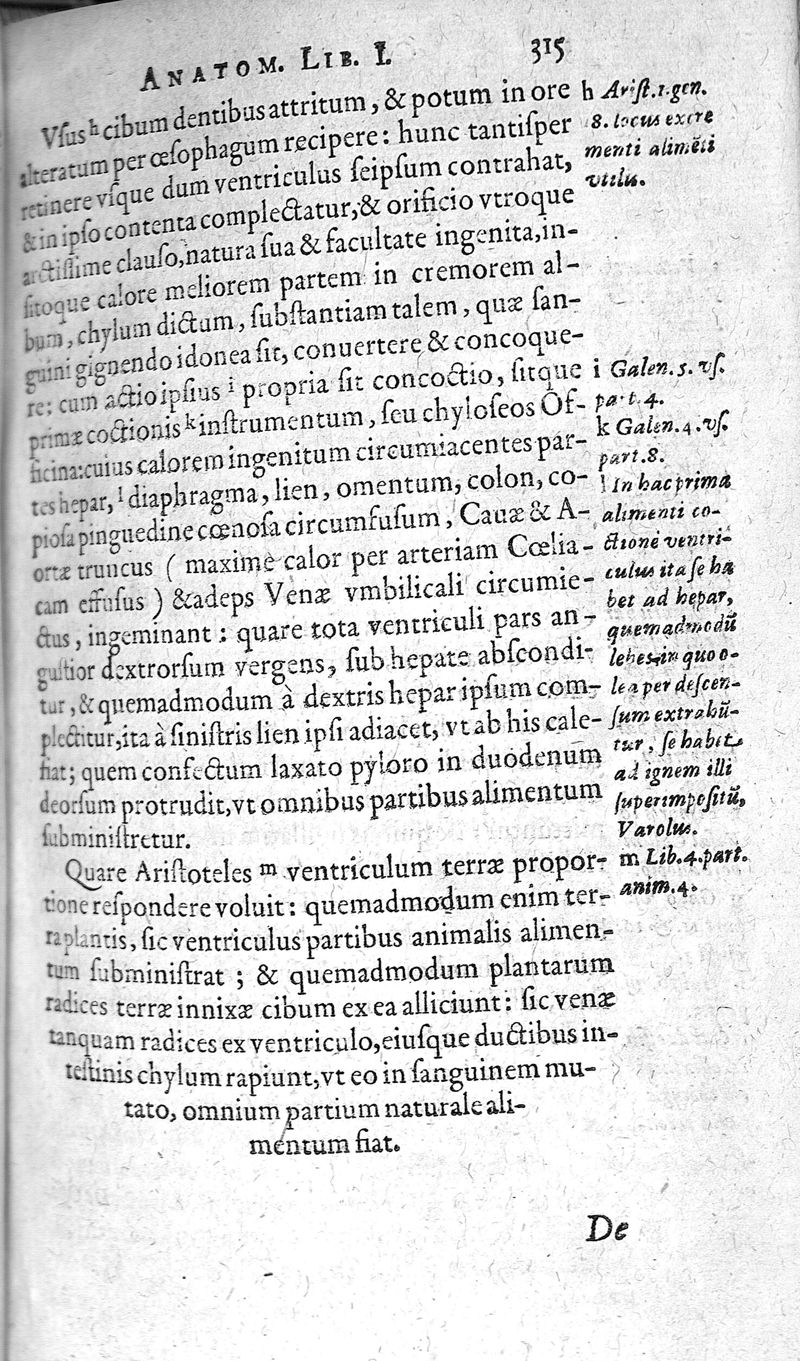 ANATOM. LIB. I. 315
Vſus h cibum dentibus attritum, & potum in ore
alteratum per œſophagum recipere: hunc tantiſper
retinere vſque dum ventriculus ſeipſum contrahat,
& in ipſo contenta complectatur, & orificio vtroque
arctiſſime clauſo, natura ſua & facultate ingenita, in-
ſitoque calore meliorem partem in cremorem al-
bum, chylum dictum, ſubſtantiam talem, quæ ſan-
guini gignendo idonea ſit, conuertere & concoque-
re: cum actio ipſius i propria ſit concoctio, ſitque
primæ coctionis k inſtrumentum, ſeu chyloſeos Of-
ficina: cuius calorem ingenitum circumiacentes par-
tes hepar, l diaphragma, lien, omentum, colon, co-
pioſa pinguedine cœnoſa circumfuſum, Cauæ & A-
ortæ truncus ( maxime calor per arteriam Cœlia-
cam effuſus ) & adeps Venæ vmbilicali circumie-
ctus, ingeminant: quare tota ventriculi pars an-
guſtior dextrorſum vergens, ſub hepate abſcondi-
tur, & quemadmodum à dextris hepar ipſum com-
plectitur, ita à ſiniſtris lien ipſi adiacet, vt ab his cale-
fiat; quem confectum laxato pyloro in duodenum
deorſum protrudit, vt omnibus partibus alimentum
ſubminiſtretur.
Quare Ariſtoteles m ventriculum terræ propor-
tione reſpondere voluit: quemadmodum enim ter-
ra plantis, ſic ventriculus partibus animalis alimen-
tum ſubminiſtrat ; & quemadmodum plantarum
radices terræ innixæ cibum ex ea alliciunt: ſic venæ
tanquam radices ex ventriculo, eiuſque ductibus in-
teſtinis chylum rapiunt, vt eo in ſanguinem mu-
tato, omnium partium naturale ali-
mentum fiat.
h Ariſt. 1. gen.
8. locus excre
menti alimẽti
vtilis.
i Galen. 5. vſ.
part. 4.
k Galen. 4. vſ.
part. 8.
l In hac prima
alimenti co-
ctione ventri-
culus ita ſe ha
bet ad hepar,
quemadmodũ
lebes, in quo o-
lea per deſcen-
ſum extrahũ-
tur, ſe habet
ad ignem illi
ſuperimpoſitũ,
Varolus.
m Lib. 4. part.
anim. 4.
De